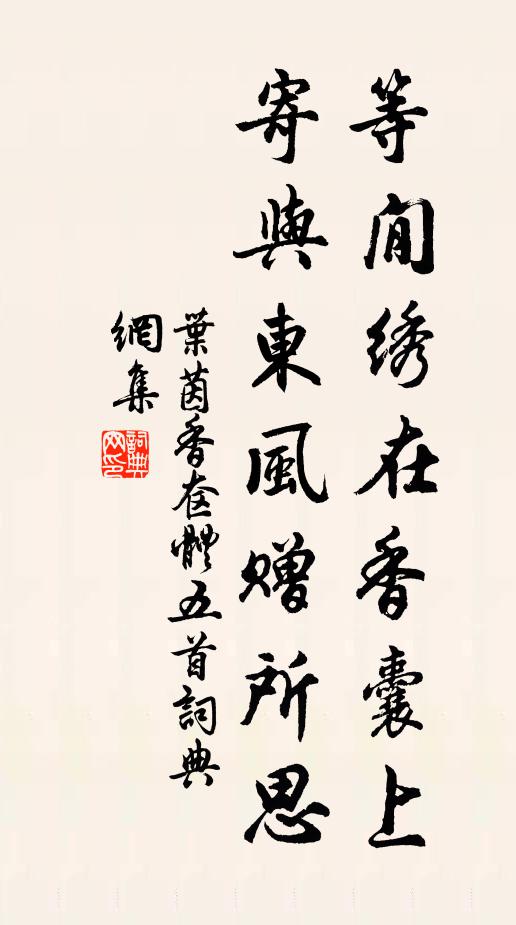 等閒绣在香囊上
寄與東風贈所思
葉茵香奩體五首詞典
網集
詞典
网印